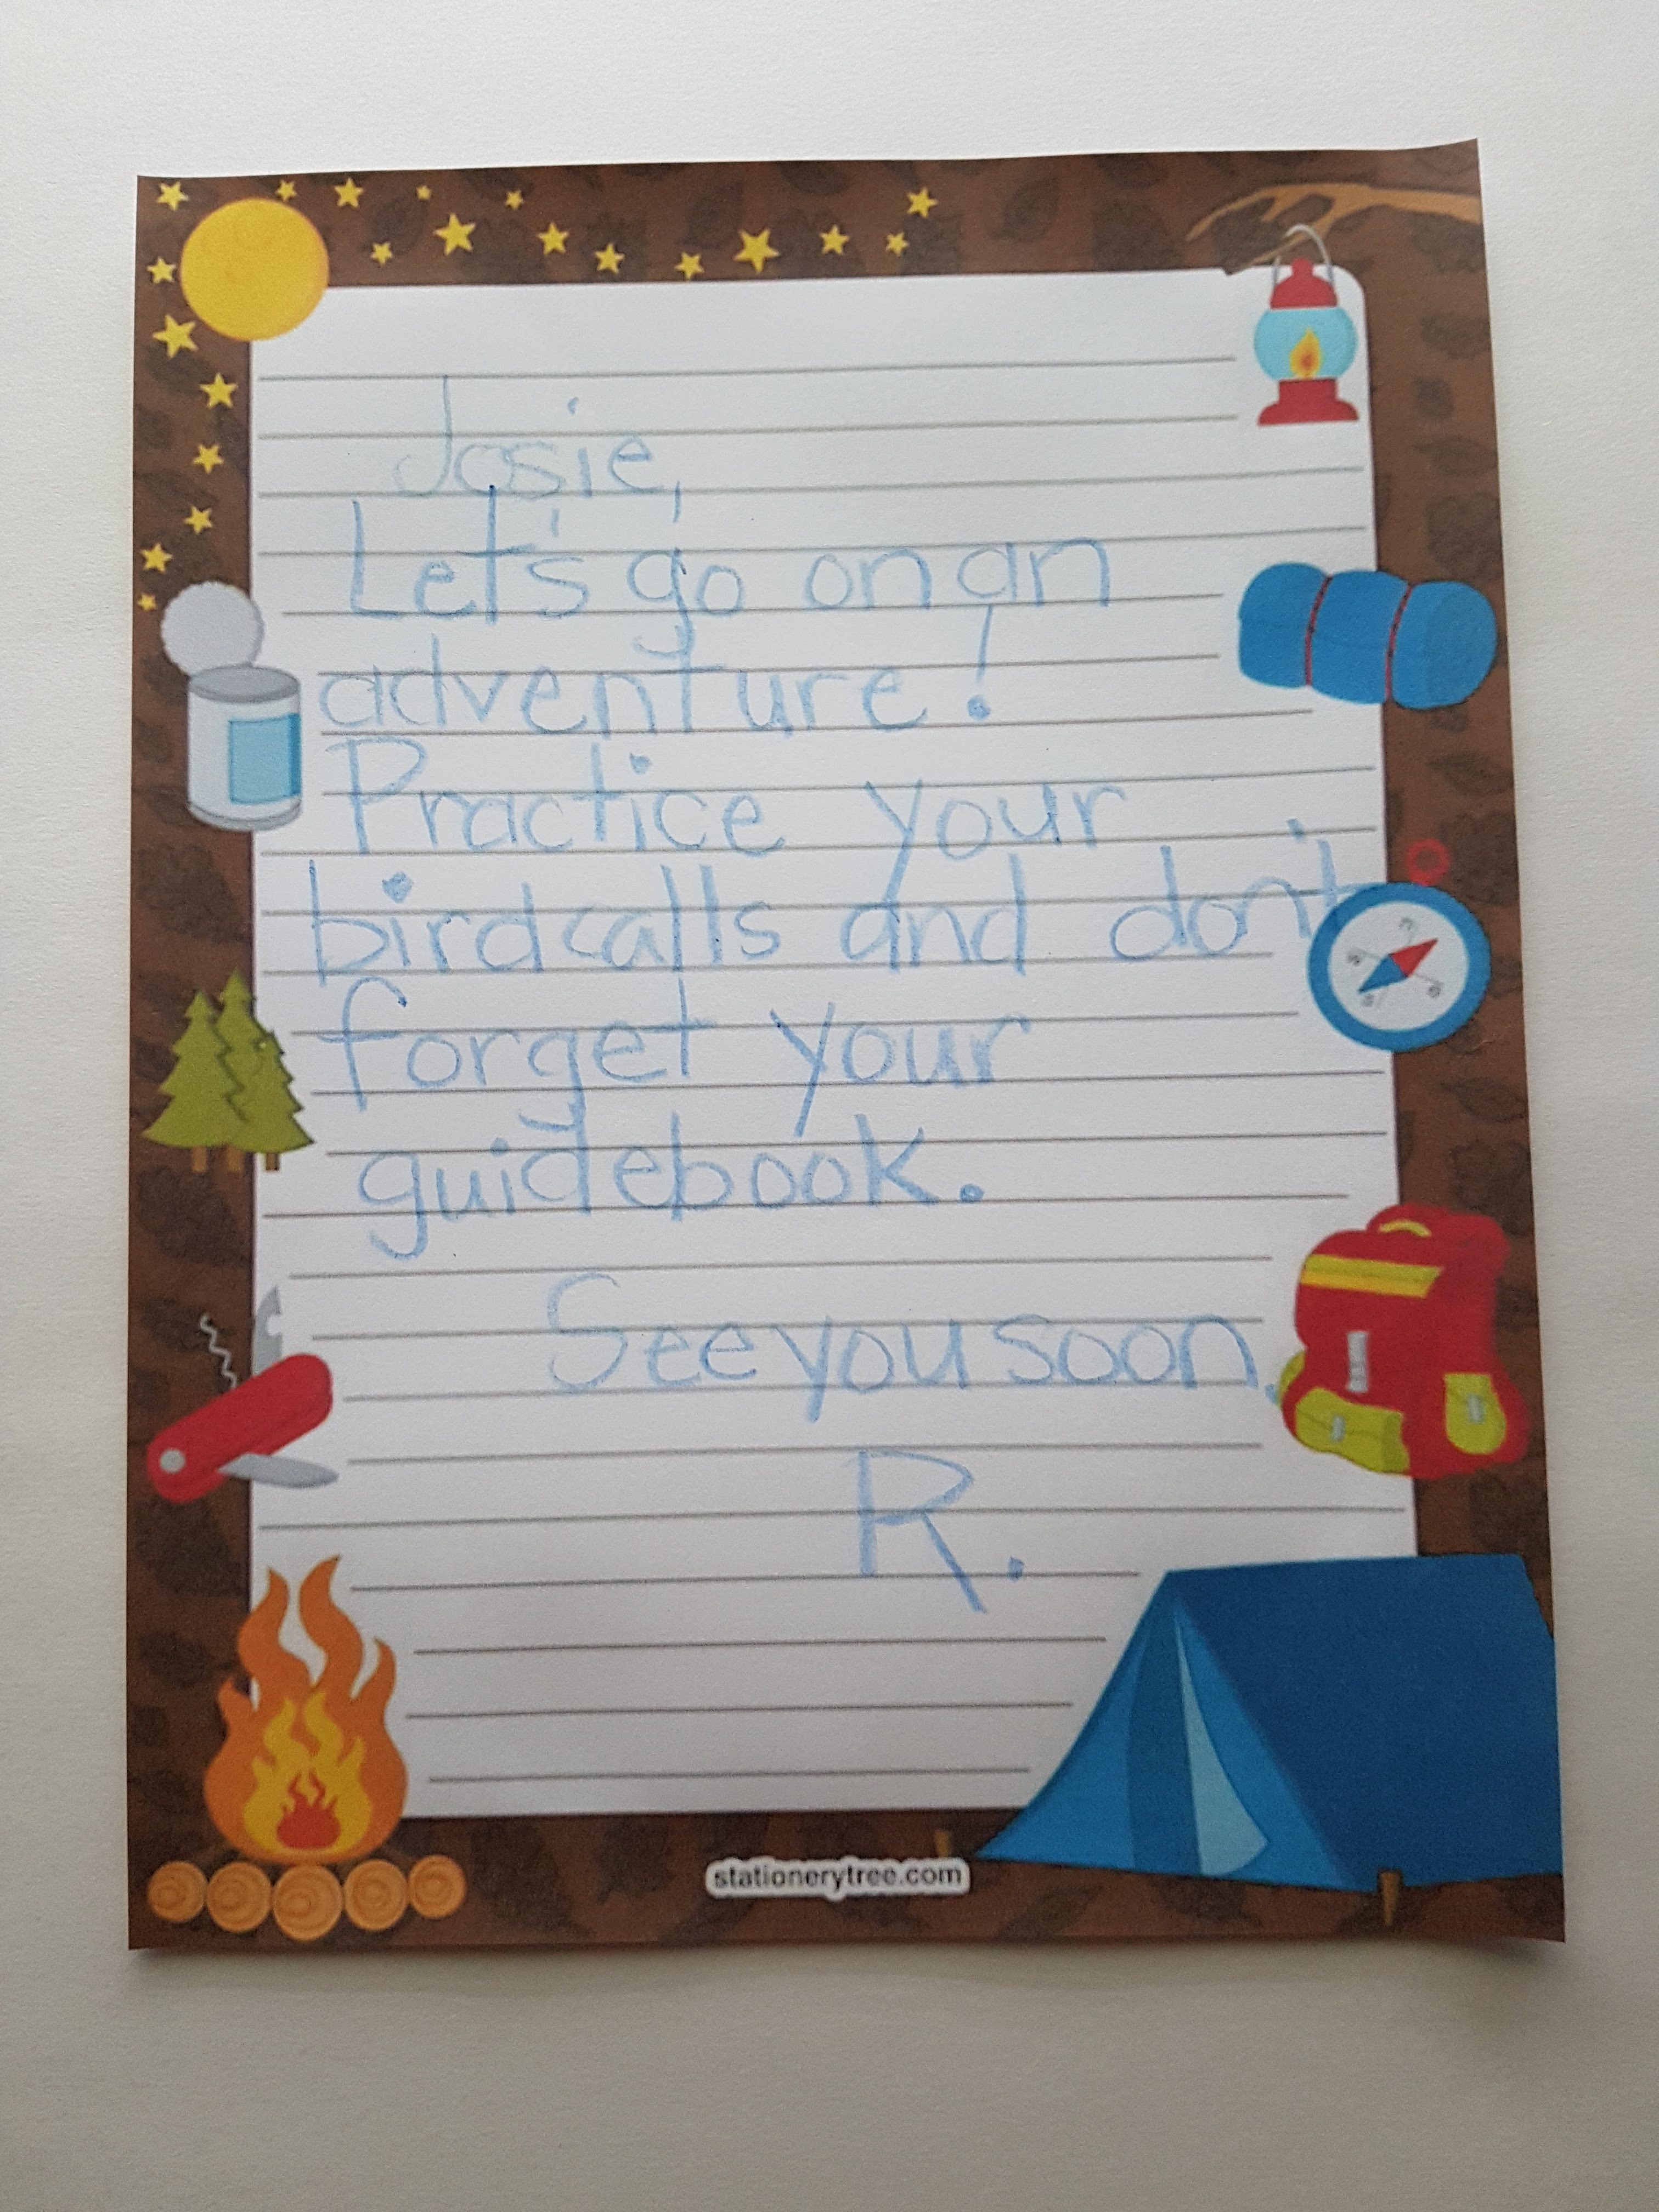 Josie,
Let's go on an
adventure!
Practice your
bird calls and don't
forget your
guidebook.
See you soon,
R.
stationerytree.com